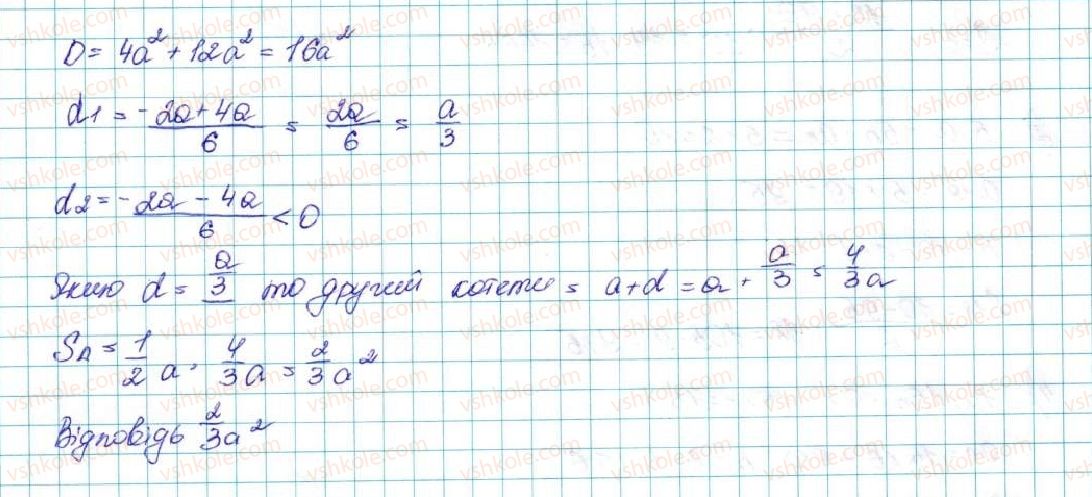 D = 4a² + 12a² = 16a²
d1 = (-2a + 4a)/6 = 2a/6 = a/3
d2 = (-2a - 4a)/6 < 0
Якщо d = a/3 то другий катети = a + d = a + a/3 = 4/3 a
S∆ = 1/2 a · 4/3 a = 2/3 a²
Відповідь 2/3 a²